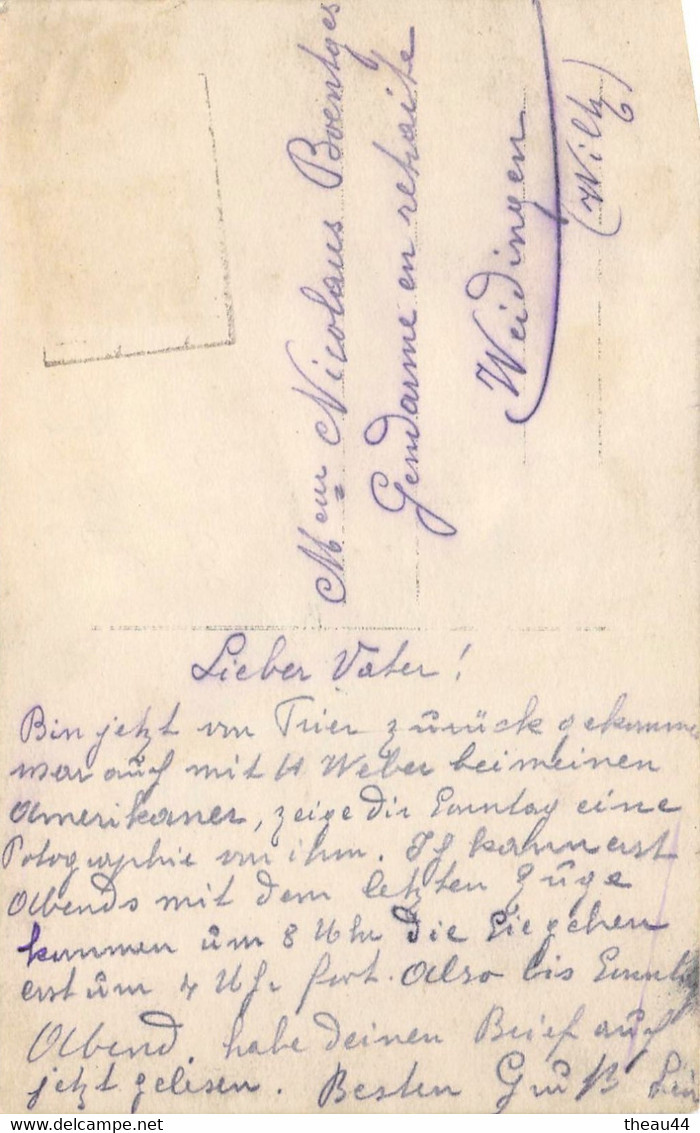 Meur Nicolaus Boentges
Gendarme en retraite
Weidingen
(Wiltz)
Lieber Vater!
Bin jetzt von Trier zurück gekomme
war auch mit H Weber bei meinen
Amerikaner, zeige dir Sonntag eine
Potographie von ihm. Ich kann erst
Abends mit dem letzten Zuge
kommen um 8 Uhr die gehen
erst um 4 Uhr fort. Also bis Sonnt
Abend, habe deinen Brief auch
jetzt gelesen. Besten Gruß
theau44